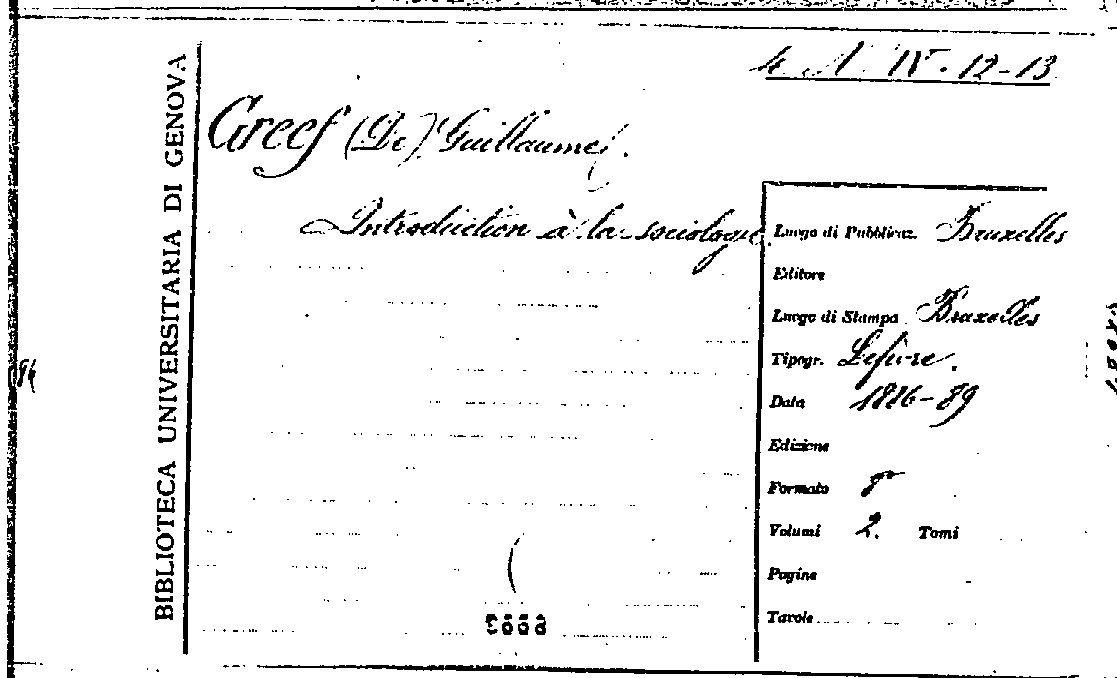 4 A IV. 12-13
BIBLIOTECA UNIVERSITARIA DI GENOVA
Greef (De) Guillaume.
Introduction à la sociologie
Luogo di Pubblicaz. Bruxelles
Editore
Luogo di Stampa Bruxelles
Tipogr. Lefèvre.
Data 1886-89
Edizione
Formato 8°
Volumi 2. Tomi
Pagine
Tavole